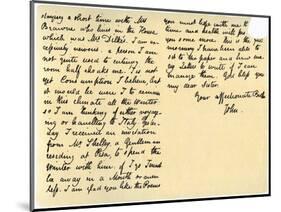 staying a short time with Mr
Brawne who lives in the House
which was Mr Dilkes. I am ex-
cessively nervous: a person I am
not quite used to entering the
room half choaks me. 'Tis not
yet Consumption I believe, but
it would be were I to remain
in this climate all the Winter:
so I am thinking of either voyag-
ing or travelling to Italy. Yester-
day I received an invitation
from Mr Shelley, a Gentleman
residing at Pisa, to spend the
Winter with him. if I go I must
be away in a Month or even
less. I am glad you like the Poems
you must hope with me that
time and health will
you some more. This is the
morning I have been able to
sit to the paper and have ma-
ny Letters to write if I can
manage them. God bless you
my dear Sister.
Your affectionate Brother
John